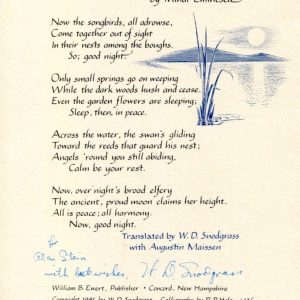 by Mihai Eminescu
Now the songbirds, all adrowse,
Come together out of sight
In their nests among the boughs.
So; good night.
Only small springs go on weeping
While the dark woods hush and cease.
Even the garden flowers are sleeping;
Sleep, then, in peace.
Across the water, the swan's gliding
Toward the reeds that guard his nest;
Angels 'round you still abiding,
Calm be your rest.
Now, over night's brood elfery
The ancient, proud moon claims her height.
All is peace; all harmony.
Now, good night.
Translated by W. D. Snodgrass
with Augustin Maissen
for
Alan Stern
with best wishes, W. D. Snodgrass
William B. Ewert, Publisher · Concord, New Hampshire
Copyright 1985 by W. D. Snodgrass Calligraphy by R. P. Hale